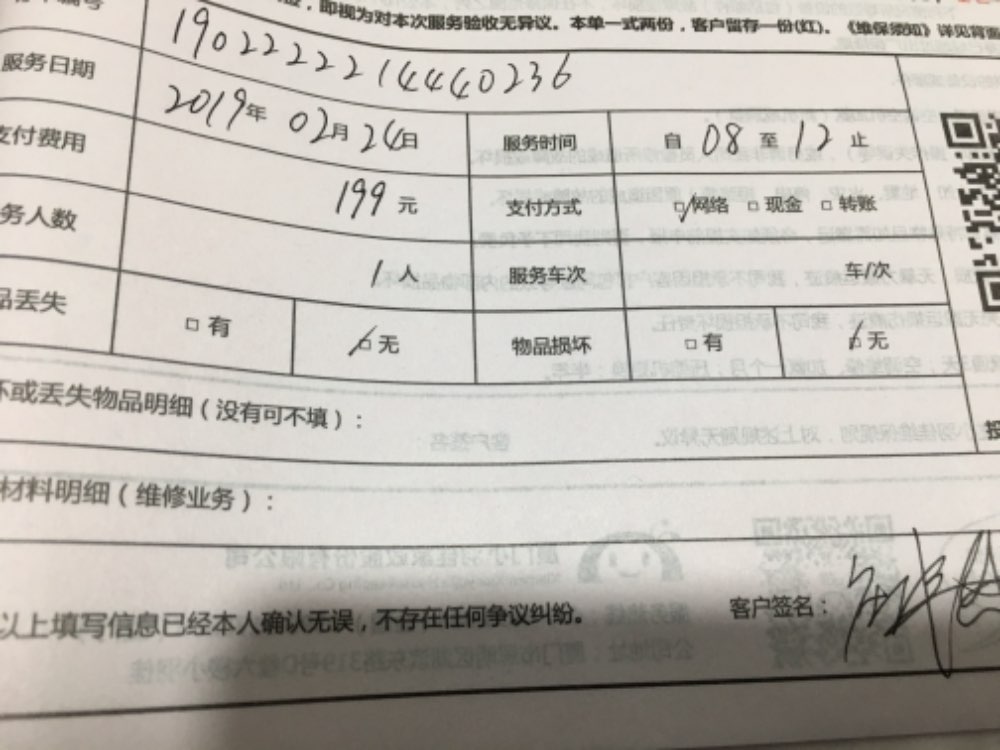 即视为对本次服务验收无异议。本单一式两份，客户留存一份(红)。《维保须知》详见背面
编号
190222214440236
服务日期
2019年 02月 24日
服务时间
自 08 至 12 止
支付费用
199 元
支付方式
□网络 □现金 □转账
务人数
1人
服务车次
车/次
品丢失
□有
□无
物品损坏
□有
□无
坏或丢失物品明细(没有可不填)：
材料明细(维修业务)：
以上填写信息已经本人确认无误，不存在任何争议纠纷。
客户签名：